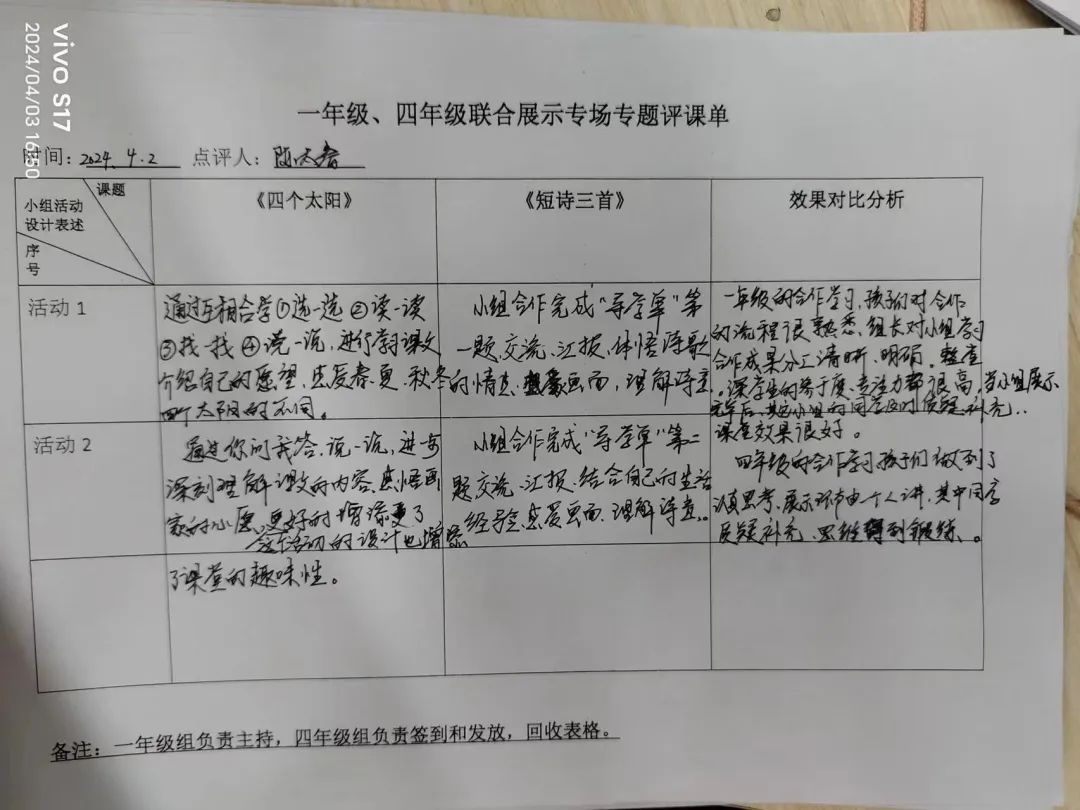 vivo S17
2024/04/03 16:50
一年级、四年级联合展示专场专题评课单
时间：2024.4.2 点评人：
课题
小组活动
设计表述
序
号
《四个太阳》
《短诗三首》
效果对比分析
活动 1
通过互相合学①选一选②读一读
③找一找④说一说，进行学习课文
介绍自己的愿望，感受春、夏、秋、冬
四个太阳的不同。
小组合作完成“导学单”第
一题，交流、汇报、体悟诗歌
的情感，画面，理解诗意。
一年级的合作学习，孩子们对合作
的流程很熟悉，组长对小组学习
合作成果分工清晰、明确。整堂
课学生的参与度、专注力都很高，当小组展示
完毕后，其他小组的同学及时质疑、补充..
课堂效果很好。
活动 2
通过你问我答、说一说，进一步
深刻理解课文的内容，感悟画
家的心愿，更好的增添更了
这个活动的设计也增添
了课堂的趣味性。
小组合作完成“导学单”第二
题交流、汇报、结合自己的生活
经验感受画面、理解诗意..
四年级的合作学习孩子们做到了
认真思考、展示环节由一个人讲，其中同学
质疑补充、思维得到锻练、。
备注：一年级组负责主持，四年级组负责签到和发放，回收表格。